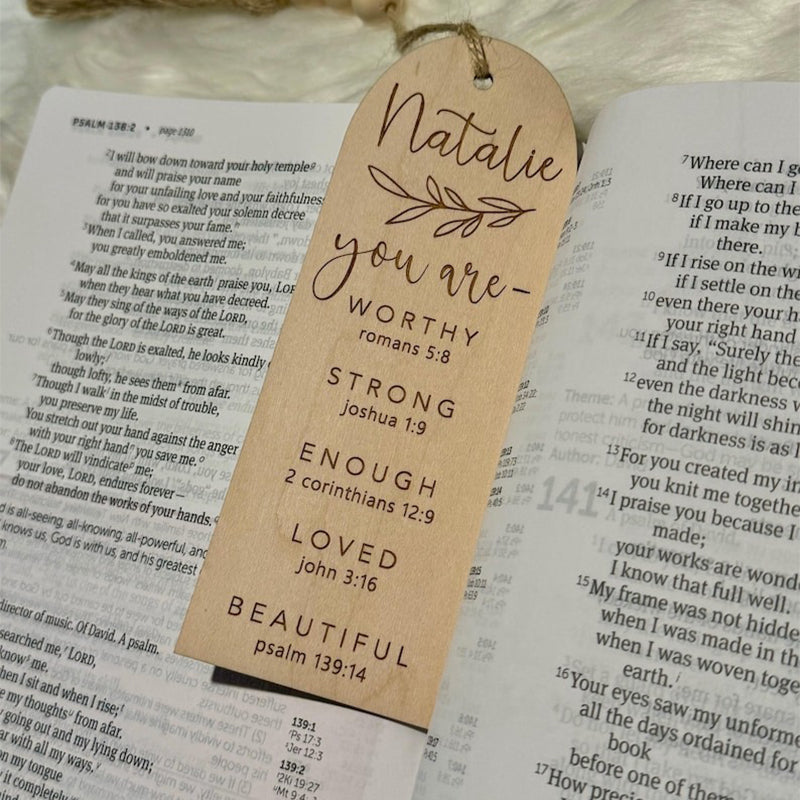 PSALM 138:2 • page 1310
²I will bow down toward your holy temple
and will praise your name
for your unfailing love and your faithfulness,
for you have so exalted your solemn decree
that it surpasses your fame.
³When I called, you answered me;
you greatly emboldened me.
⁴May all the kings of the earth praise you, LOR
when they hear what you have decreed.
⁵May they sing of the ways of the LORD,
for the glory of the LORD is great.
⁶Though the LORD is exalted, he looks kindly
lowly;
though lofty, he sees them from afar.
⁷Though I walk in the midst of trouble,
you preserve my life.
You stretch out your hand against the anger
with your right hand you save me.
⁸The LORD will vindicate me;
your love, LORD, endures forever—
do not abandon the works of your hands.
is all-seeing, all-knowing, all-powerful, and
knows us, God is with us, and his greatest
director of music. Of David. A psalm.
searched me, LORD,
know me.
when I sit and when I rise;
my thoughts from afar.
going out and my lying down;
ar with all my ways.
n my tongue
it completely
139:1
Ps 17:3
Jer 12:3
139:2
2Ki 19:27
Natalie
you are-
WORTHY
romans 5:8
STRONG
joshua 1:9
ENOUGH
2 corinthians 12:9
LOVED
john 3:16
BEAUTIFUL
psalm 139:14
⁷Where can I g
Where can I
⁸If I go up to the
if I make my b
there.
⁹If I rise on the wi
if I settle on the
¹⁰even there your h
your right hand
¹¹If I say, "Surely the
and the light bec
¹²even the darkness w
the night will shin
for darkness is as l
¹³For you created my in
you knit me togethe
¹⁴I praise you because I
made;
your works are wond
I know that full well.
¹⁵My frame was not hidde
when I was made in th
when I was woven toge
earth.
¹⁶Your eyes saw my unforme
all the days ordained for
book
before one of them
¹⁷How precio